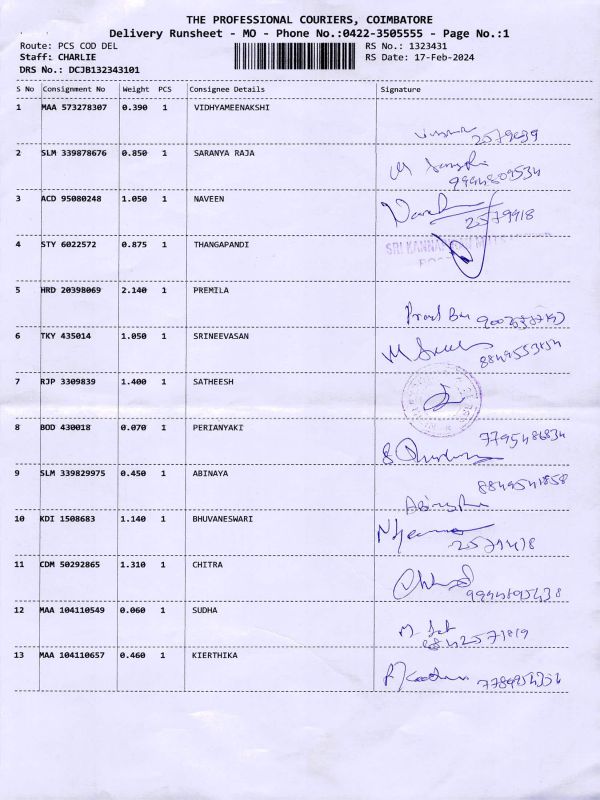 THE PROFESSIONAL COURIERS, COIMBATORE
Delivery Runsheet - MO - Phone No.:0422-3505555 - Page No.:1
Route: PCS COD DEL RS No.: 1323431
Staff: CHARLIE RS Date: 17-Feb-2024
DRS No.: DCJB132343101
S No Consignment No Weight PCS Consignee Details Signature
1 MAA 573278307 0.390 1 VIDHYAMEENAKSHI
2 SLM 339878676 0.850 1 SARANYA RAJA
9994809534
3 ACD 95080248 1.050 1 NAVEEN
2579918
4 STY 6022572 0.875 1 THANGAPANDI
5 HRD 20398069 2.140 1 PREMILA
6 TKY 435014 1.050 1 SRINEEVASAN
7 RJP 3309839 1.400 1 SATHEESH
8 BOD 430018 0.070 1 PERIANYAKI
7795486834
9 SLM 339829975 0.450 1 ABINAYA
8849541858
10 KDI 1508683 1.140 1 BHUVANESWARI
11 CDM 50292865 1.310 1 CHITRA
12 MAA 104110549 0.060 1 SUDHA
13 MAA 104110657 0.460 1 KIERTHIKA